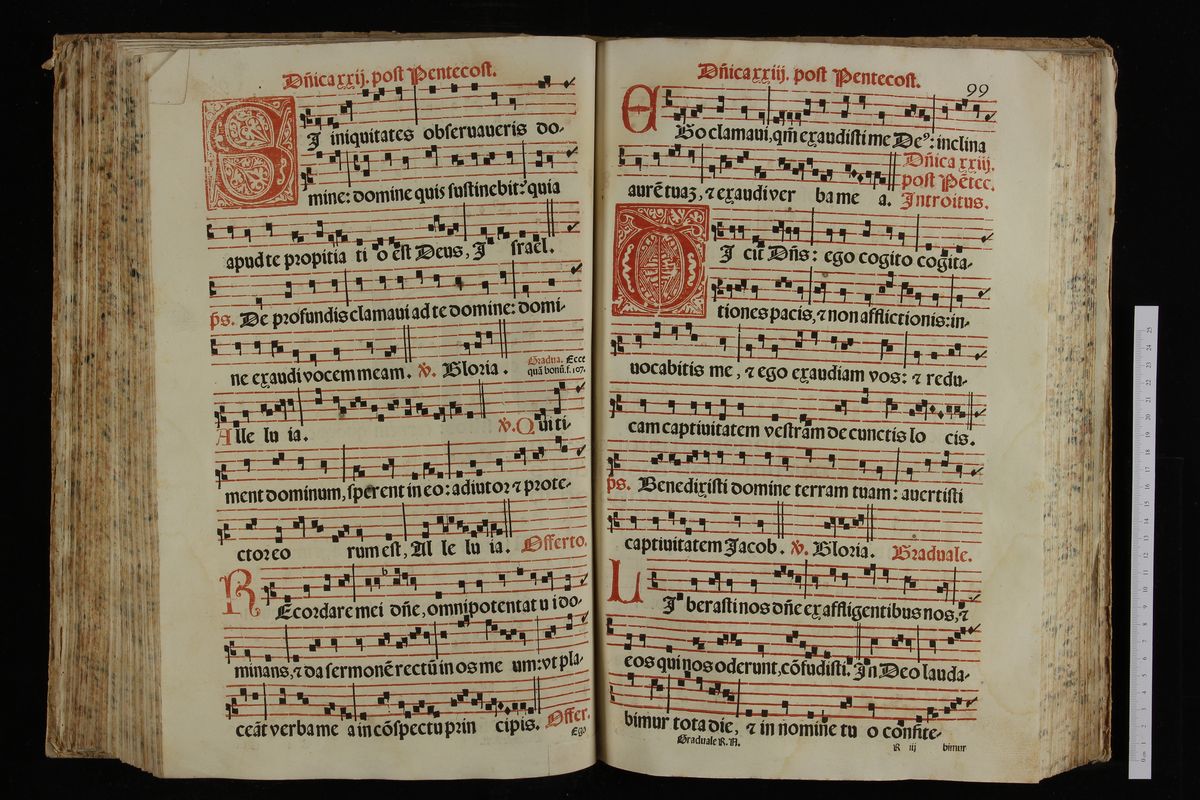 Dñica xxij. post Pentecost.
SI iniquitates obseruaueris do-
mine: domine quis sustinebit? quia
apud te propitia ti o est Deus, I srael.
ps. De profundis clamaui ad te domine: domi-
ne exaudi vocem meam. ℣. Gloria. Gradua. Ecce
quã bonũ. f. 107.
Alle lu ia. ℣. Qui ti-
ment dominum, sperent in eo: adiutoꝛ ⁊ prote-
ctor eo rum est, Al le lu ia. Offerto.
REcordare mei dñe, omnipotentat u i do-
minans, ⁊ da sermonẽ rectũ in os me um: vt pla-
ceãt verba me a in cõspectu prin cipis. Offer.
Ego
Dñica xxiij. post Pentecost.
99
EGo clamaui, qm̃ exaudisti me Deꝰ: inclina
aurẽ tuaꝫ, ⁊ exaudi ver ba me a. Dñica xxiij.
post Pẽtec.
Introitus.
DI cit Dñs: ego cogito cogita-
tiones pacis, ⁊ non afflictionis: in-
uocabitis me, ⁊ ego exaudiam vos: ⁊ redu-
cam captiuitatem vestram de cunctis lo cis.
ps. Benedixisti domine terram tuam: auertisti
captiuitatem Jacob. ℣. Gloria. Graduale.
LI berasti nos dñe ex affligentibus nos, ⁊
eos qui nos oderunt, cõfudisti. In Deo lauda-
bimur tota die, ⁊ in nomine tu o confite-
Graduale R. N. R iij bimur